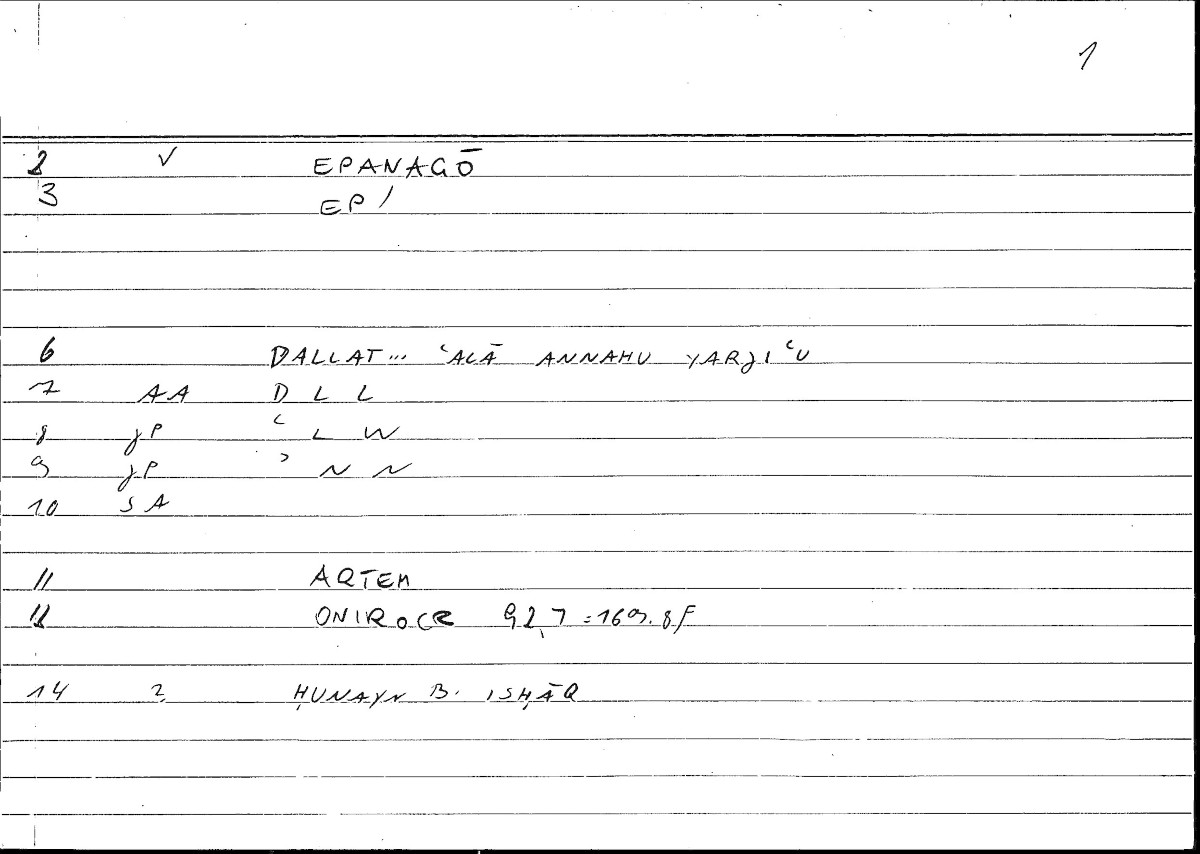 1
2 V EPANAGŌ
3 EP/
6 DALLAT... ʿALĀ ANNAHU YARJIʿU
7 AA D L L
8 JP ʿ L W
9 JP ʾ N N
10 SA
11 ARTEM
12 ONIROCR 92,7 = 169.8f
14 2 ḤUNAYN B. ISḤĀQ